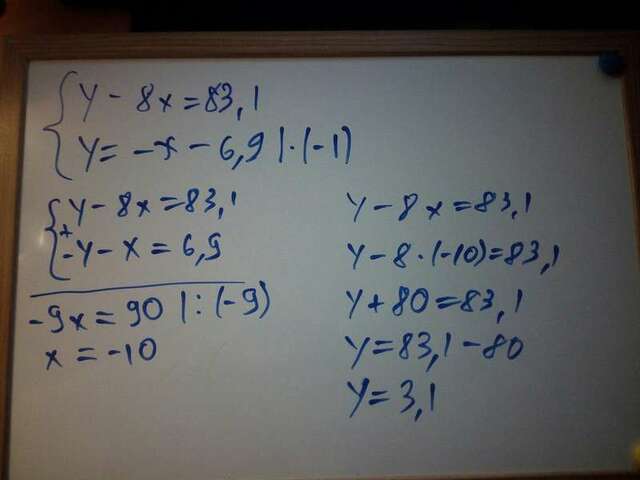 y - 8x = 83,1
y = -x - 6,9 | · (-1)
y - 8x = 83,1
+
-y - x = 6,9
-9x = 90 | : (-9)
x = -10
y - 8x = 83,1
y - 8 · (-10) = 83,1
y + 80 = 83,1
y = 83,1 - 80
y = 3,1